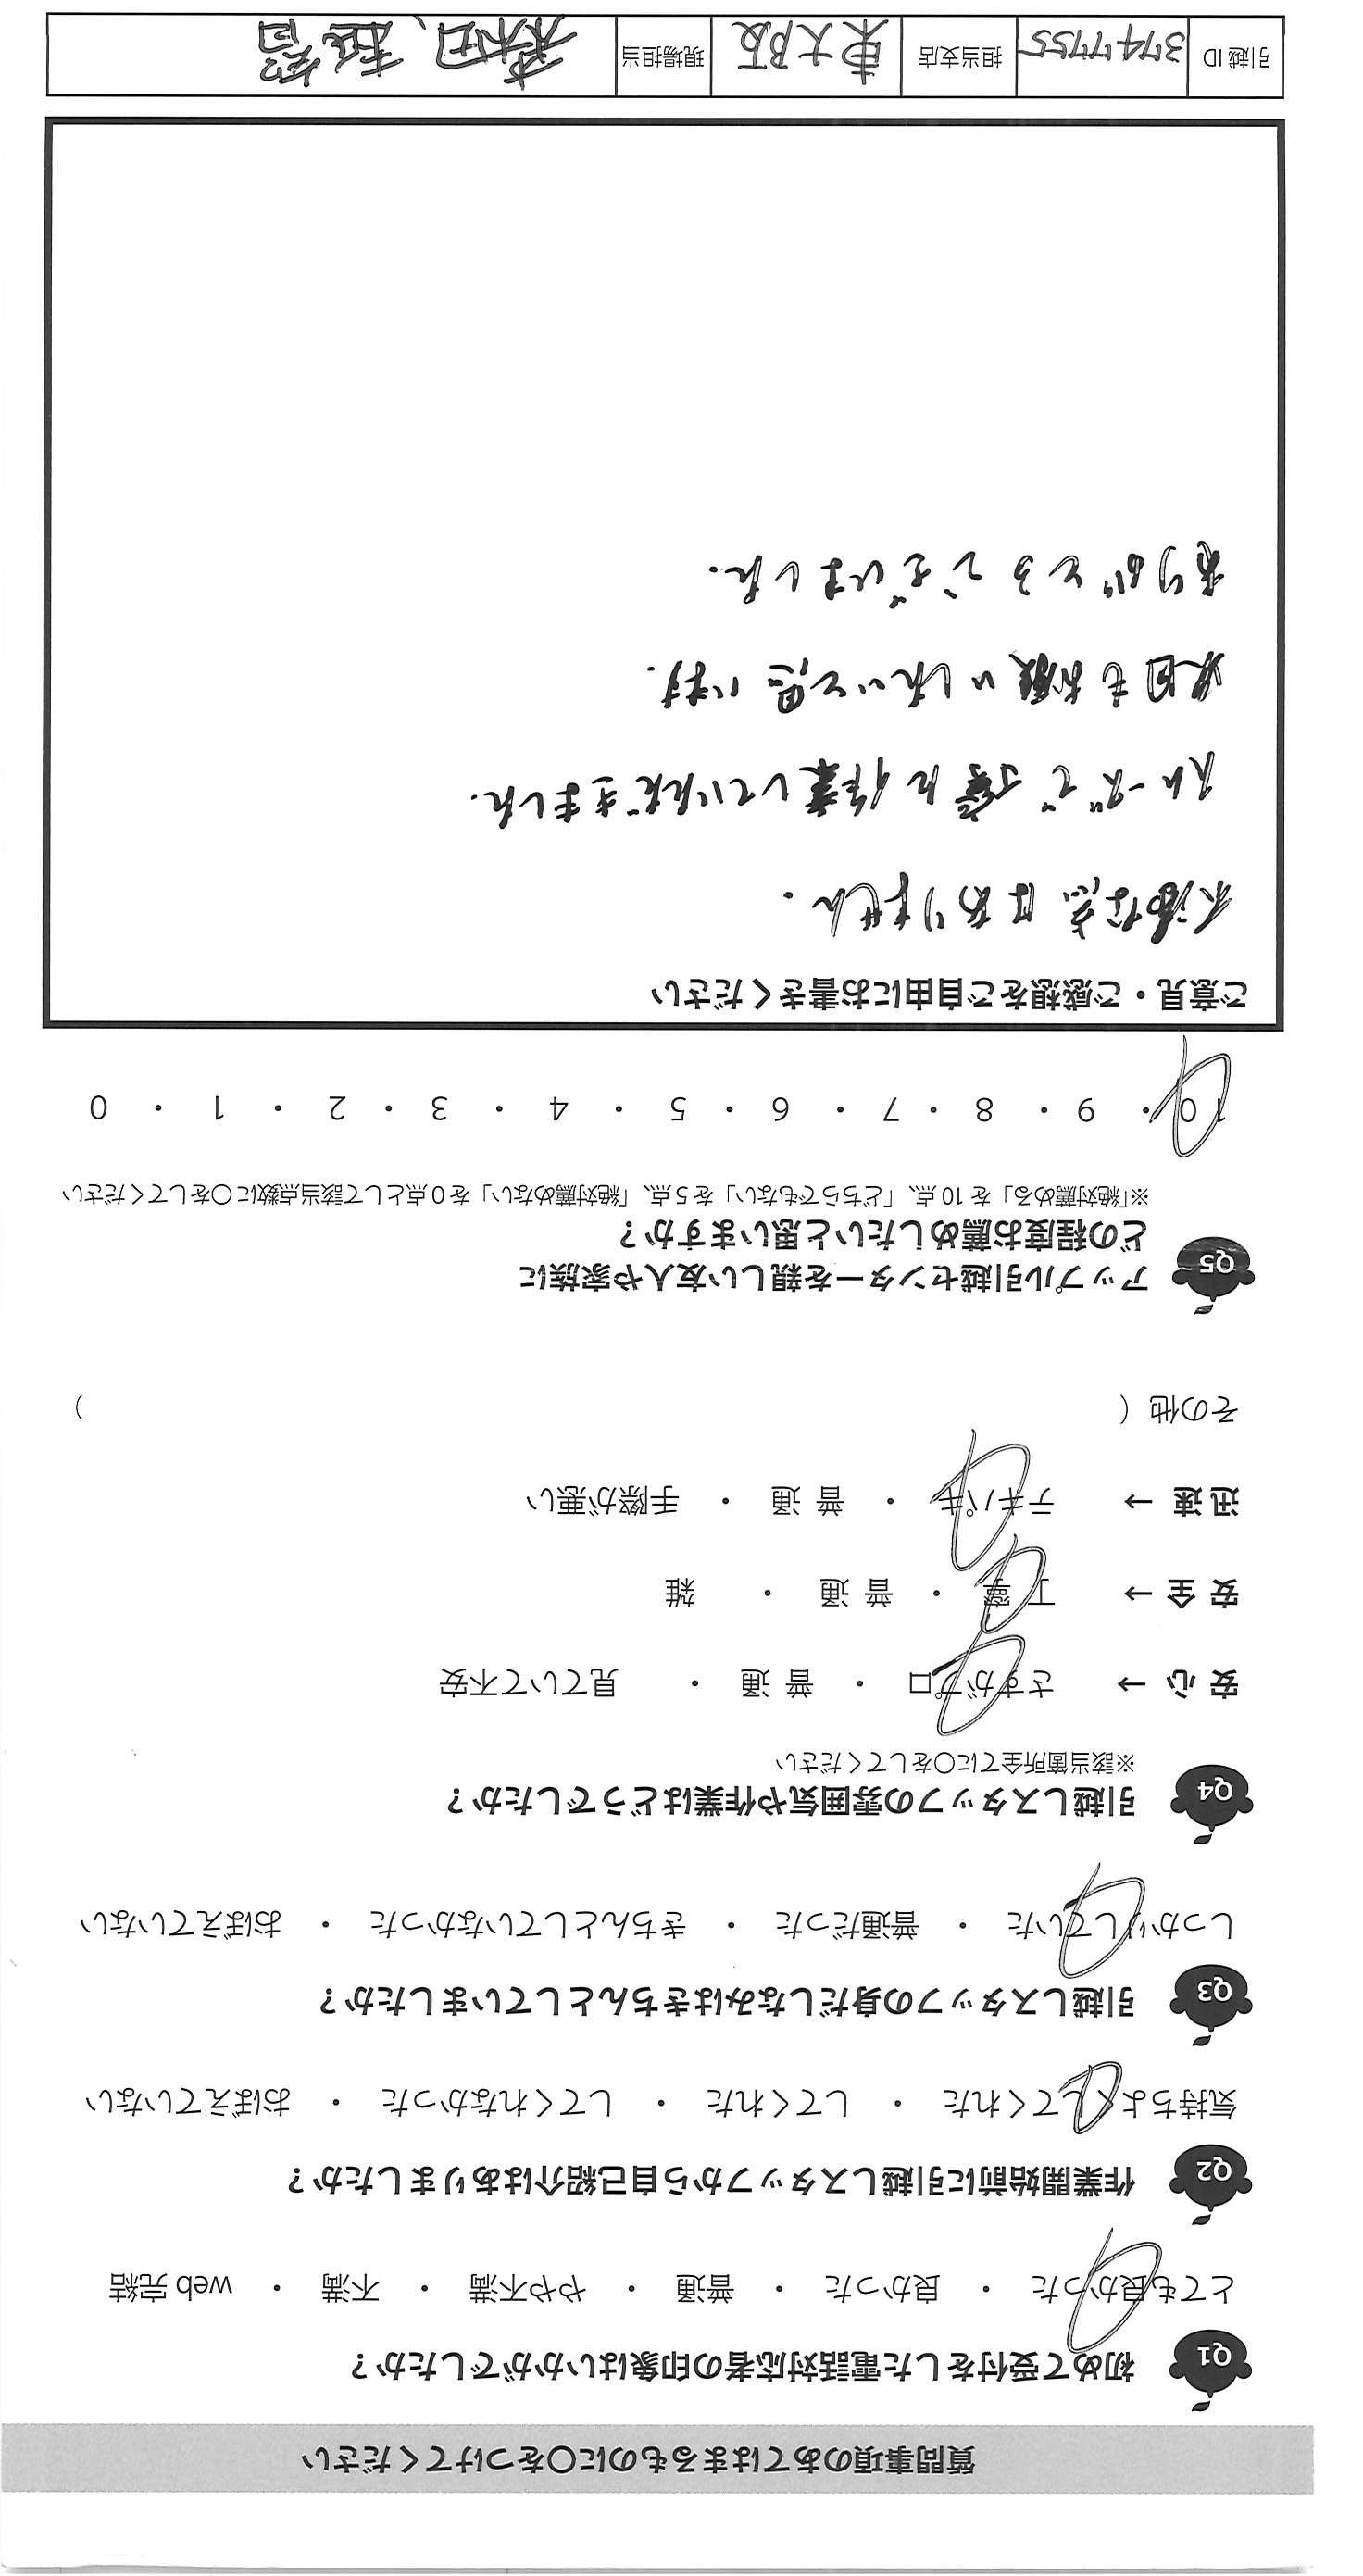 質問事項のあてはまるものに○をつけてください
Q1 初めて受付をした電話対応者の印象はいかがでしたか？
とても良かった ・ 良かった ・ 普通 ・ やや不満 ・ 不満 ・ web 完結
Q2 作業開始前に引越しスタッフから自己紹介はありましたか？
気持ちよくしてくれた ・ してくれた ・ してくれなかった ・ おぼえていない
Q3 引越しスタッフの身だしなみはきちんとしていましたか？
しっかりしていた ・ 普通だった ・ きちんとしていなかった ・ おぼえていない
Q4 引越しスタッフの雰囲気や作業はどうでしたか？
※該当箇所全てに○をしてください
安 心 → さすがプロ ・ 普 通 ・ 見ていて不安
安 全 → 丁 寧 ・ 普 通 ・ 雑
迅 速 → テキパキ ・ 普 通 ・ 手際が悪い
その他（ ）
Q5 アップル引越センターを親しい友人や家族に
どの程度お薦めしたいと思いますか？
※「絶対薦める」を 10 点、「どちらでもない」を 5 点、「絶対薦めない」を 0 点として該当点数に○をしてください
10 ・ 9 ・ 8 ・ 7 ・ 6 ・ 5 ・ 4 ・ 3 ・ 2 ・ 1 ・ 0
ご意見・ご感想をご自由にお書きください
不満な点はありません。
スムーズで丁寧に作業していただきました。
次回もお願いしたいと思います。
ありがとうございました。
引越 ID 37477755 担当支店 東大阪 現場担当 森田、